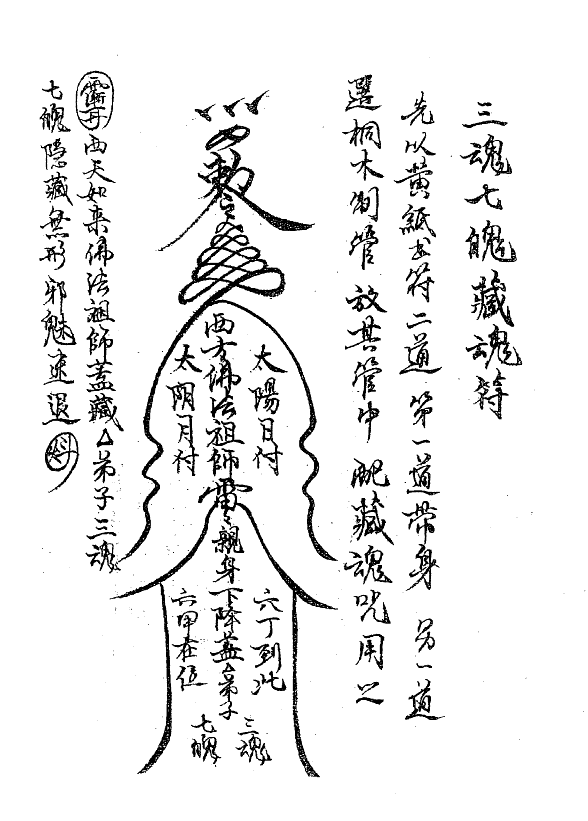 三魂七魄藏魂符
先以黄紙書符二道 第一道帶身 另一道
選桐木制管 放其管中 配藏魂咒用之
敕令
西方佛法祖師雷親身下降蓋△弟子
三魂
七魄
太陽日付
太阴月付
六丁到此
六甲在位
西天如来佛法祖師蓋藏△弟子三魂
七魄隐藏無形邪魅速退